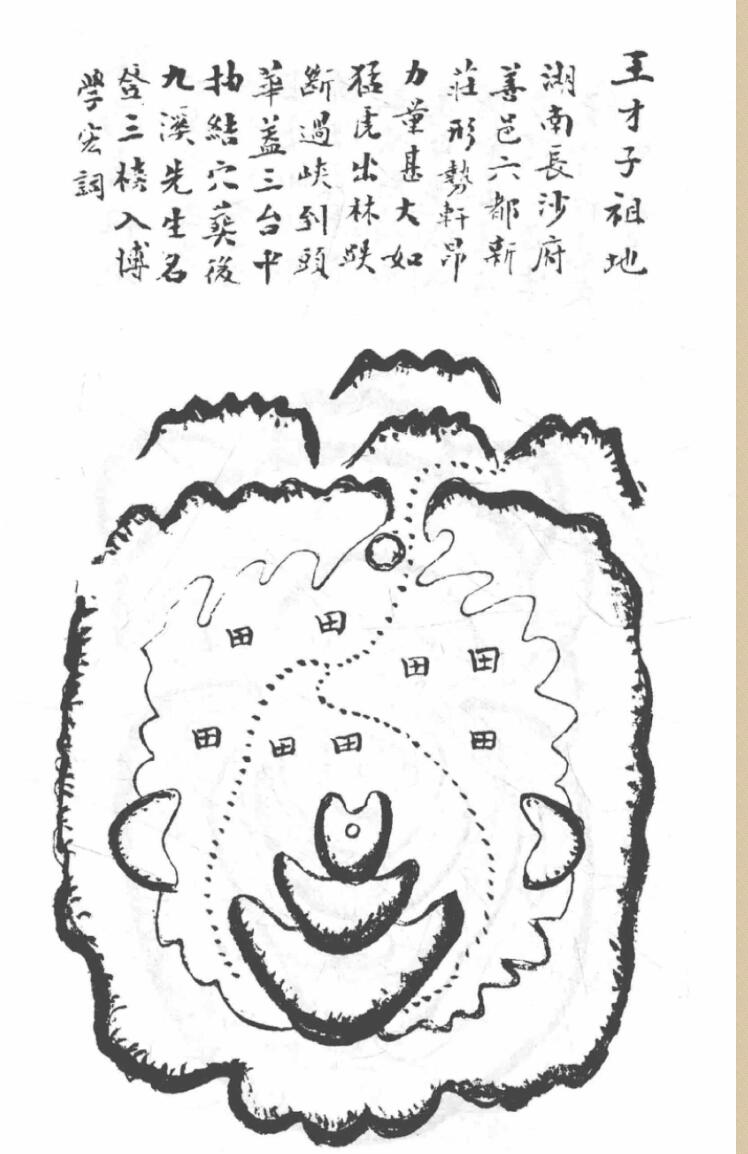 王才子祖地
湖南長沙府
善邑六都新
莊形勢軒昂
力量甚大如
猛虎出林跌
斷過峽到頭
華蓋三台中
抽結穴葬後
九溪先生名
登三榜入博
學宏詞
田
田
田
田
田
田
田
田